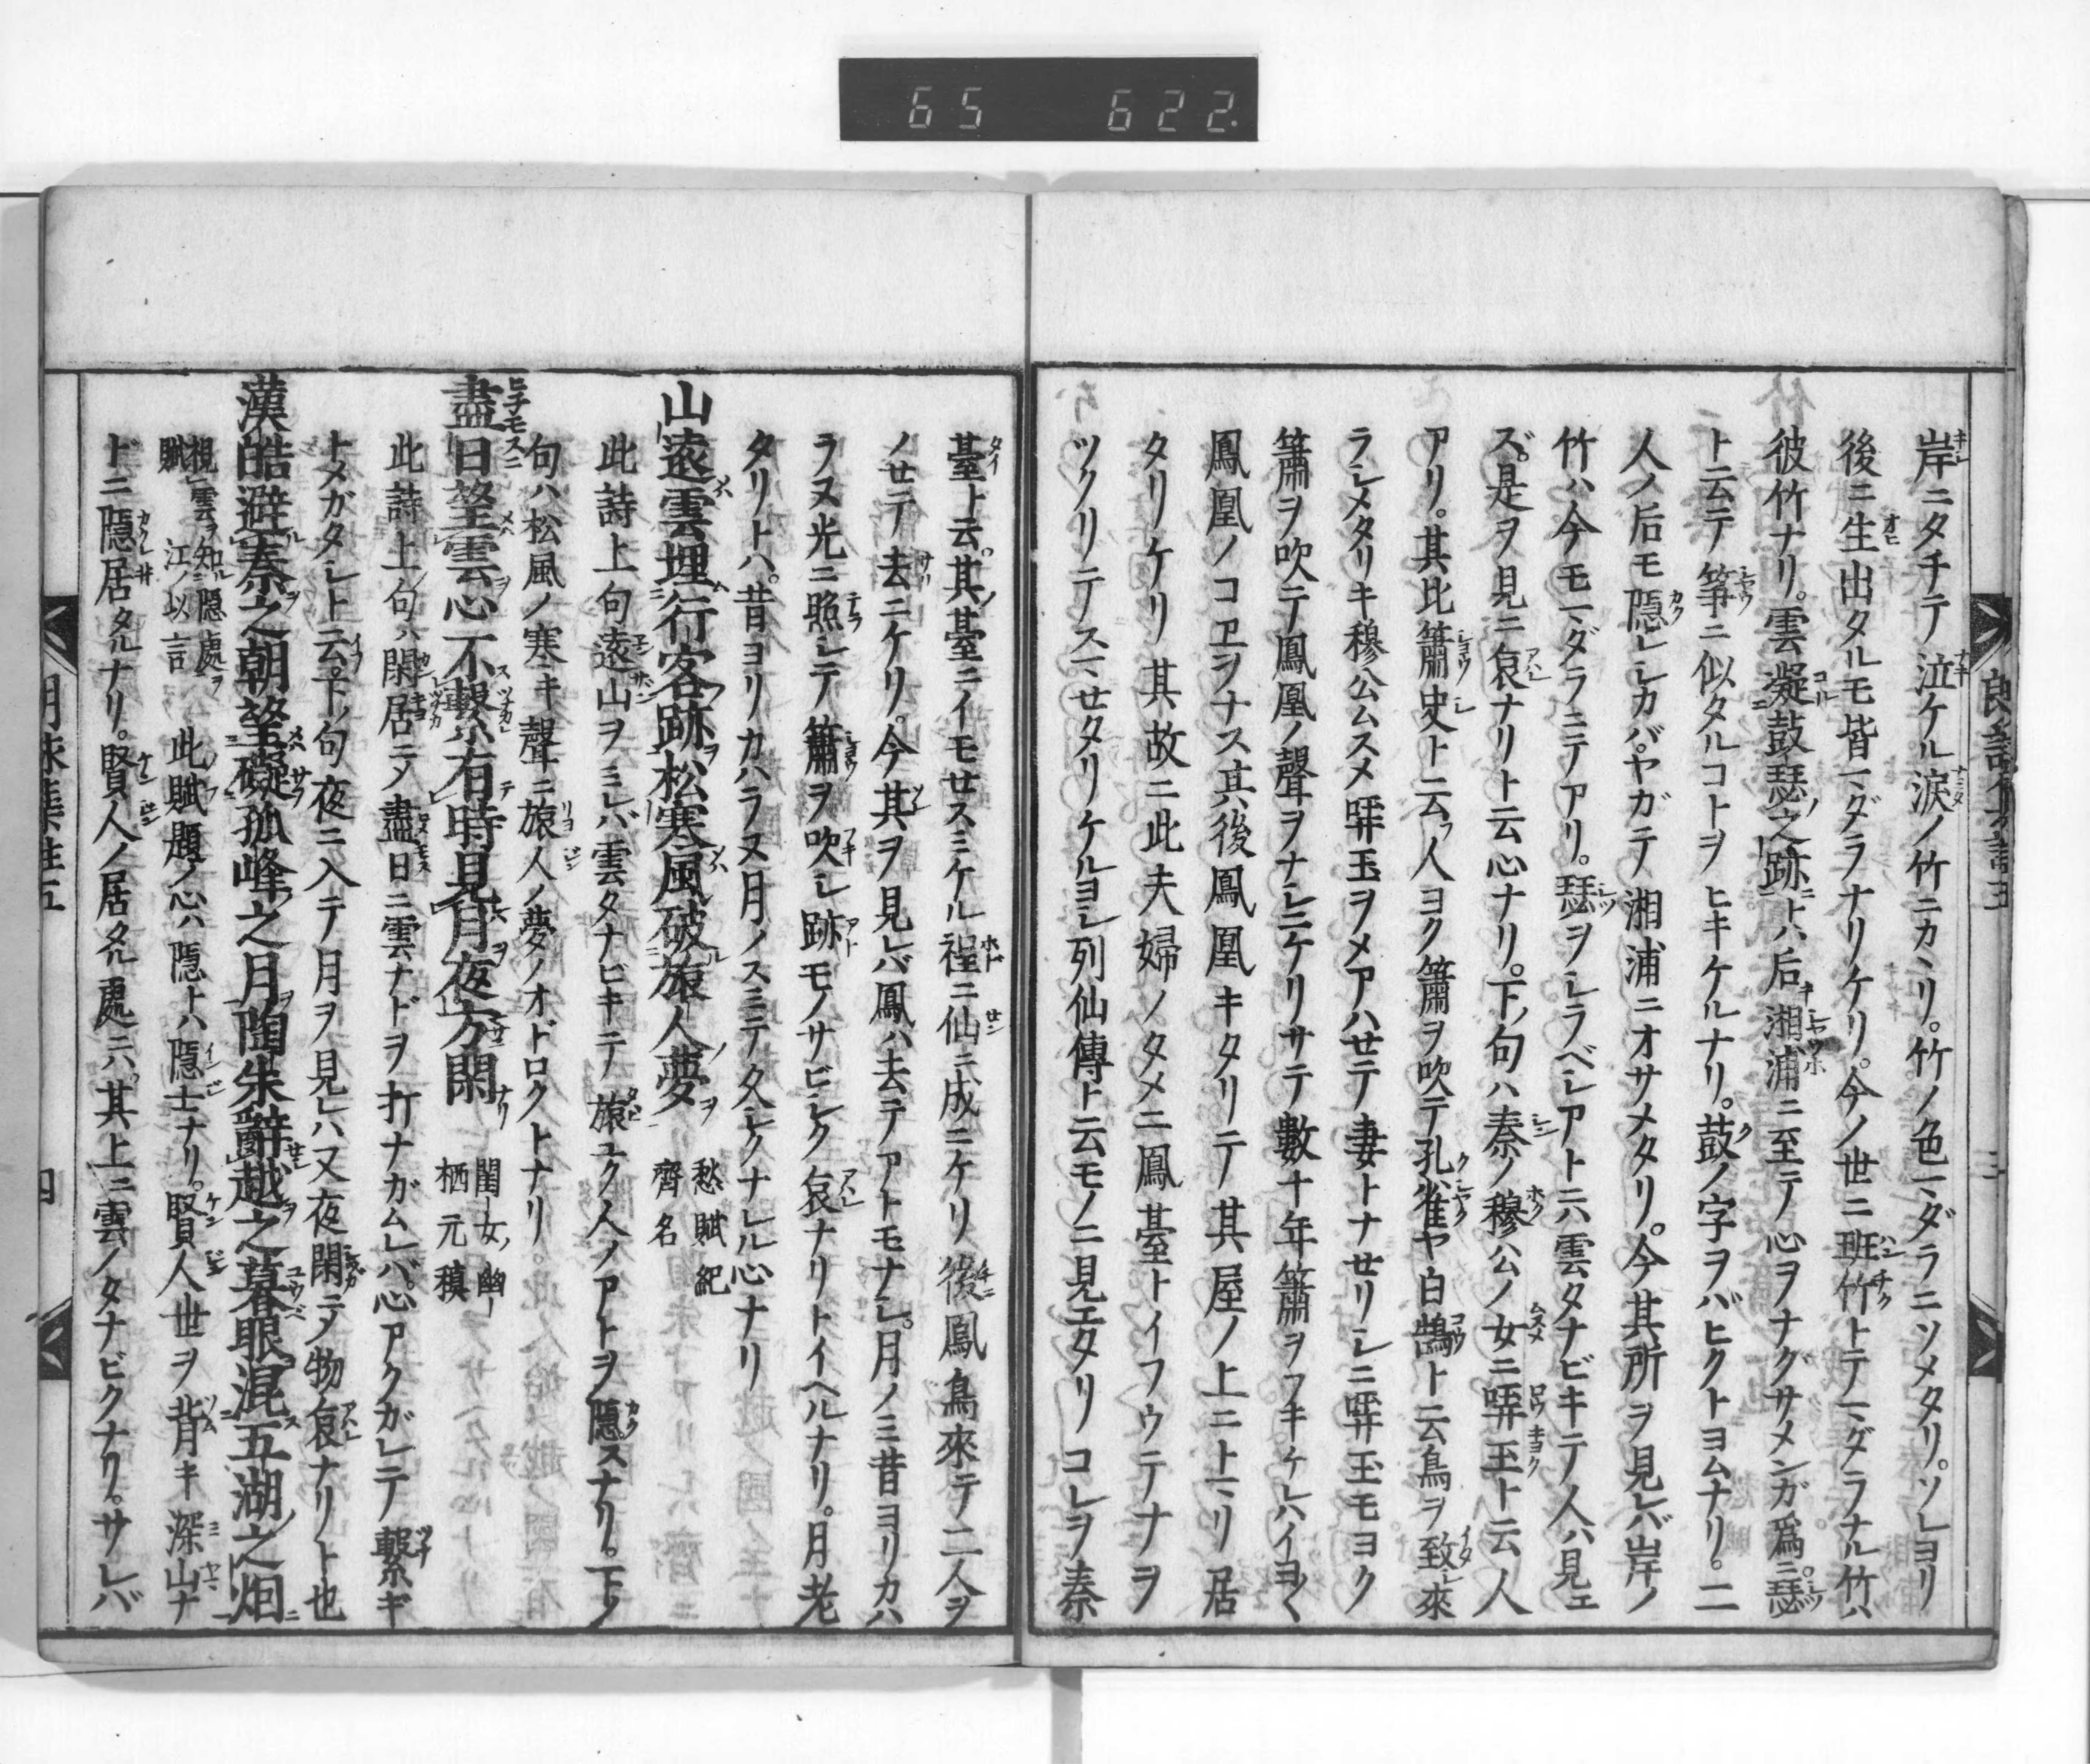 65 622.
岸ニタチテ泣ケル涙ノ竹ニカヽリ。竹ノ色マダラニソメタリ。ソレヨリ
後ニ生出タルモ皆マダラナリケリ。今ノ世ニ班竹トテマダラナル竹ハ
彼竹ナリ。雲凝鼓瑟之跡トハ后湘浦ニ至テ心ヲナグサメンガ爲ニ瑟
ト云テ箏ニ似タルコトヲヒキケルナリ。鼓ノ字ヲバヒクトヨムナリ。二
人ノ后モ隠レシカバヤガテ湘浦ニオサメタリ。今其所ヲ見レバ岸ノ
竹ハ今モマダラニテアリ。瑟ヲシラベシアトニハ雲タナビキテ人ハ見エ
ズ。是ヲ見ニ哀ナリト云心ナリ。下ノ句ハ秦ノ穆公ノ女ニ哢玉ト云人
アリ。其比簫史ト云フ人ヨク簫ヲ吹テ孔雀ヤ白鵠ト云鳥ヲ致シ來
ラシメタリキ穆公ムスメ哢玉ヲメアハセテ妻トナセリシニ哢玉モヨク
簫ヲ吹テ鳳凰ノ聲ヲナシニケリサテ數十年簫ヲフキケレハイヨ〱
鳳凰ノコヱヲナス其後鳳凰キタリテ其屋ノ上ニトマリ居
タリケリ其故ニ此夫婦ノタメニ鳳臺トイフウテナヲ
ツクリテスマセタリケルヨシ列仙傳ト云モノニ見エタリコレヲ秦
臺ト云。其臺ニイモセスミケル程ニ仙ニ成ニケリ後鳳鳥來テ二人ヲ
ノセテ去ニケリ。今其ヲ見レバ鳳ハ去テアトモナシ。月ノミ昔ヨリカハ
ラヌ光ニ照シテ簫ヲ吹シ跡モノサビシク哀ナリトイヘルナリ。月老
タリトハ。昔ヨリカハラヌ月ノスミテ久シクナレル心ナリ
山遠雲埋行客跡松寒風破旅人夢 愁賦 紀齊名
此詩上句遠山ヲミレバ雲タナビキテ旅ユク人ノアトヲ隠スナリ。下ノ
句ハ松風ノ寒キ聲ニ旅人ノ夢ノオドロクトナリ
盡日望雲心不繫有時見月夜方閑 閨女幽栖 元稹
此詩上句ハ閑居ニメ盡日ニ雲ナドヲ打ナガムレバ。心アクガレテ繫ギ
トメガタシト云。下ノ句夜ニ入テ月ヲ見レハ又夜閑ニテ物哀ナリト也
漢皓避秦之朝望礙孤峰之月陶朱辭越之暮眼混五湖之烟
視雲知隠處賦 江以言 此賦題ノ心ハ隠トハ隠士ナリ。賢人世ヲ背キ深山ナ
ドニ隠居タルナリ。賢人ノ居タル處ニハ。其上ニ雲ノタナビクナリ。サレバ